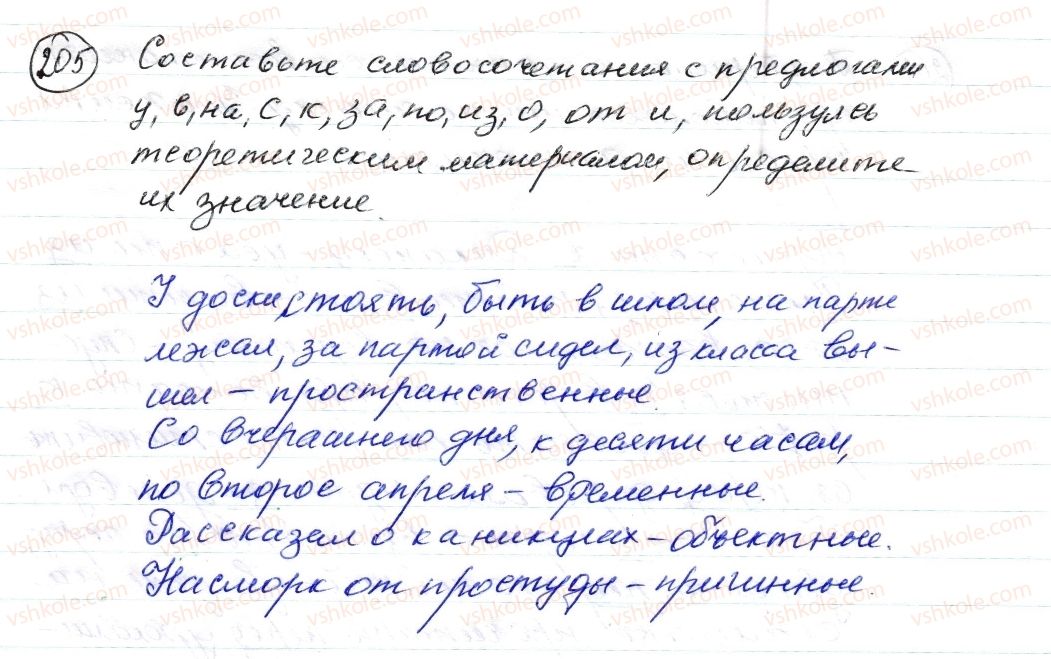 205 Составьте словосочетания с предлогами
у, в, на, с, к, за, по, из, о, от и, пользуясь
теоретическим материалом, определите
их значение.
У доски стоять, быть в школе, на парте
лежал, за партой сидел, из класса вы-
шел – пространственные.
Со вчерашнего дня, к десяти часам,
по второе апреля – временные.
Рассказал о каникулах – объектные.
Насморк от простуды – причинные.